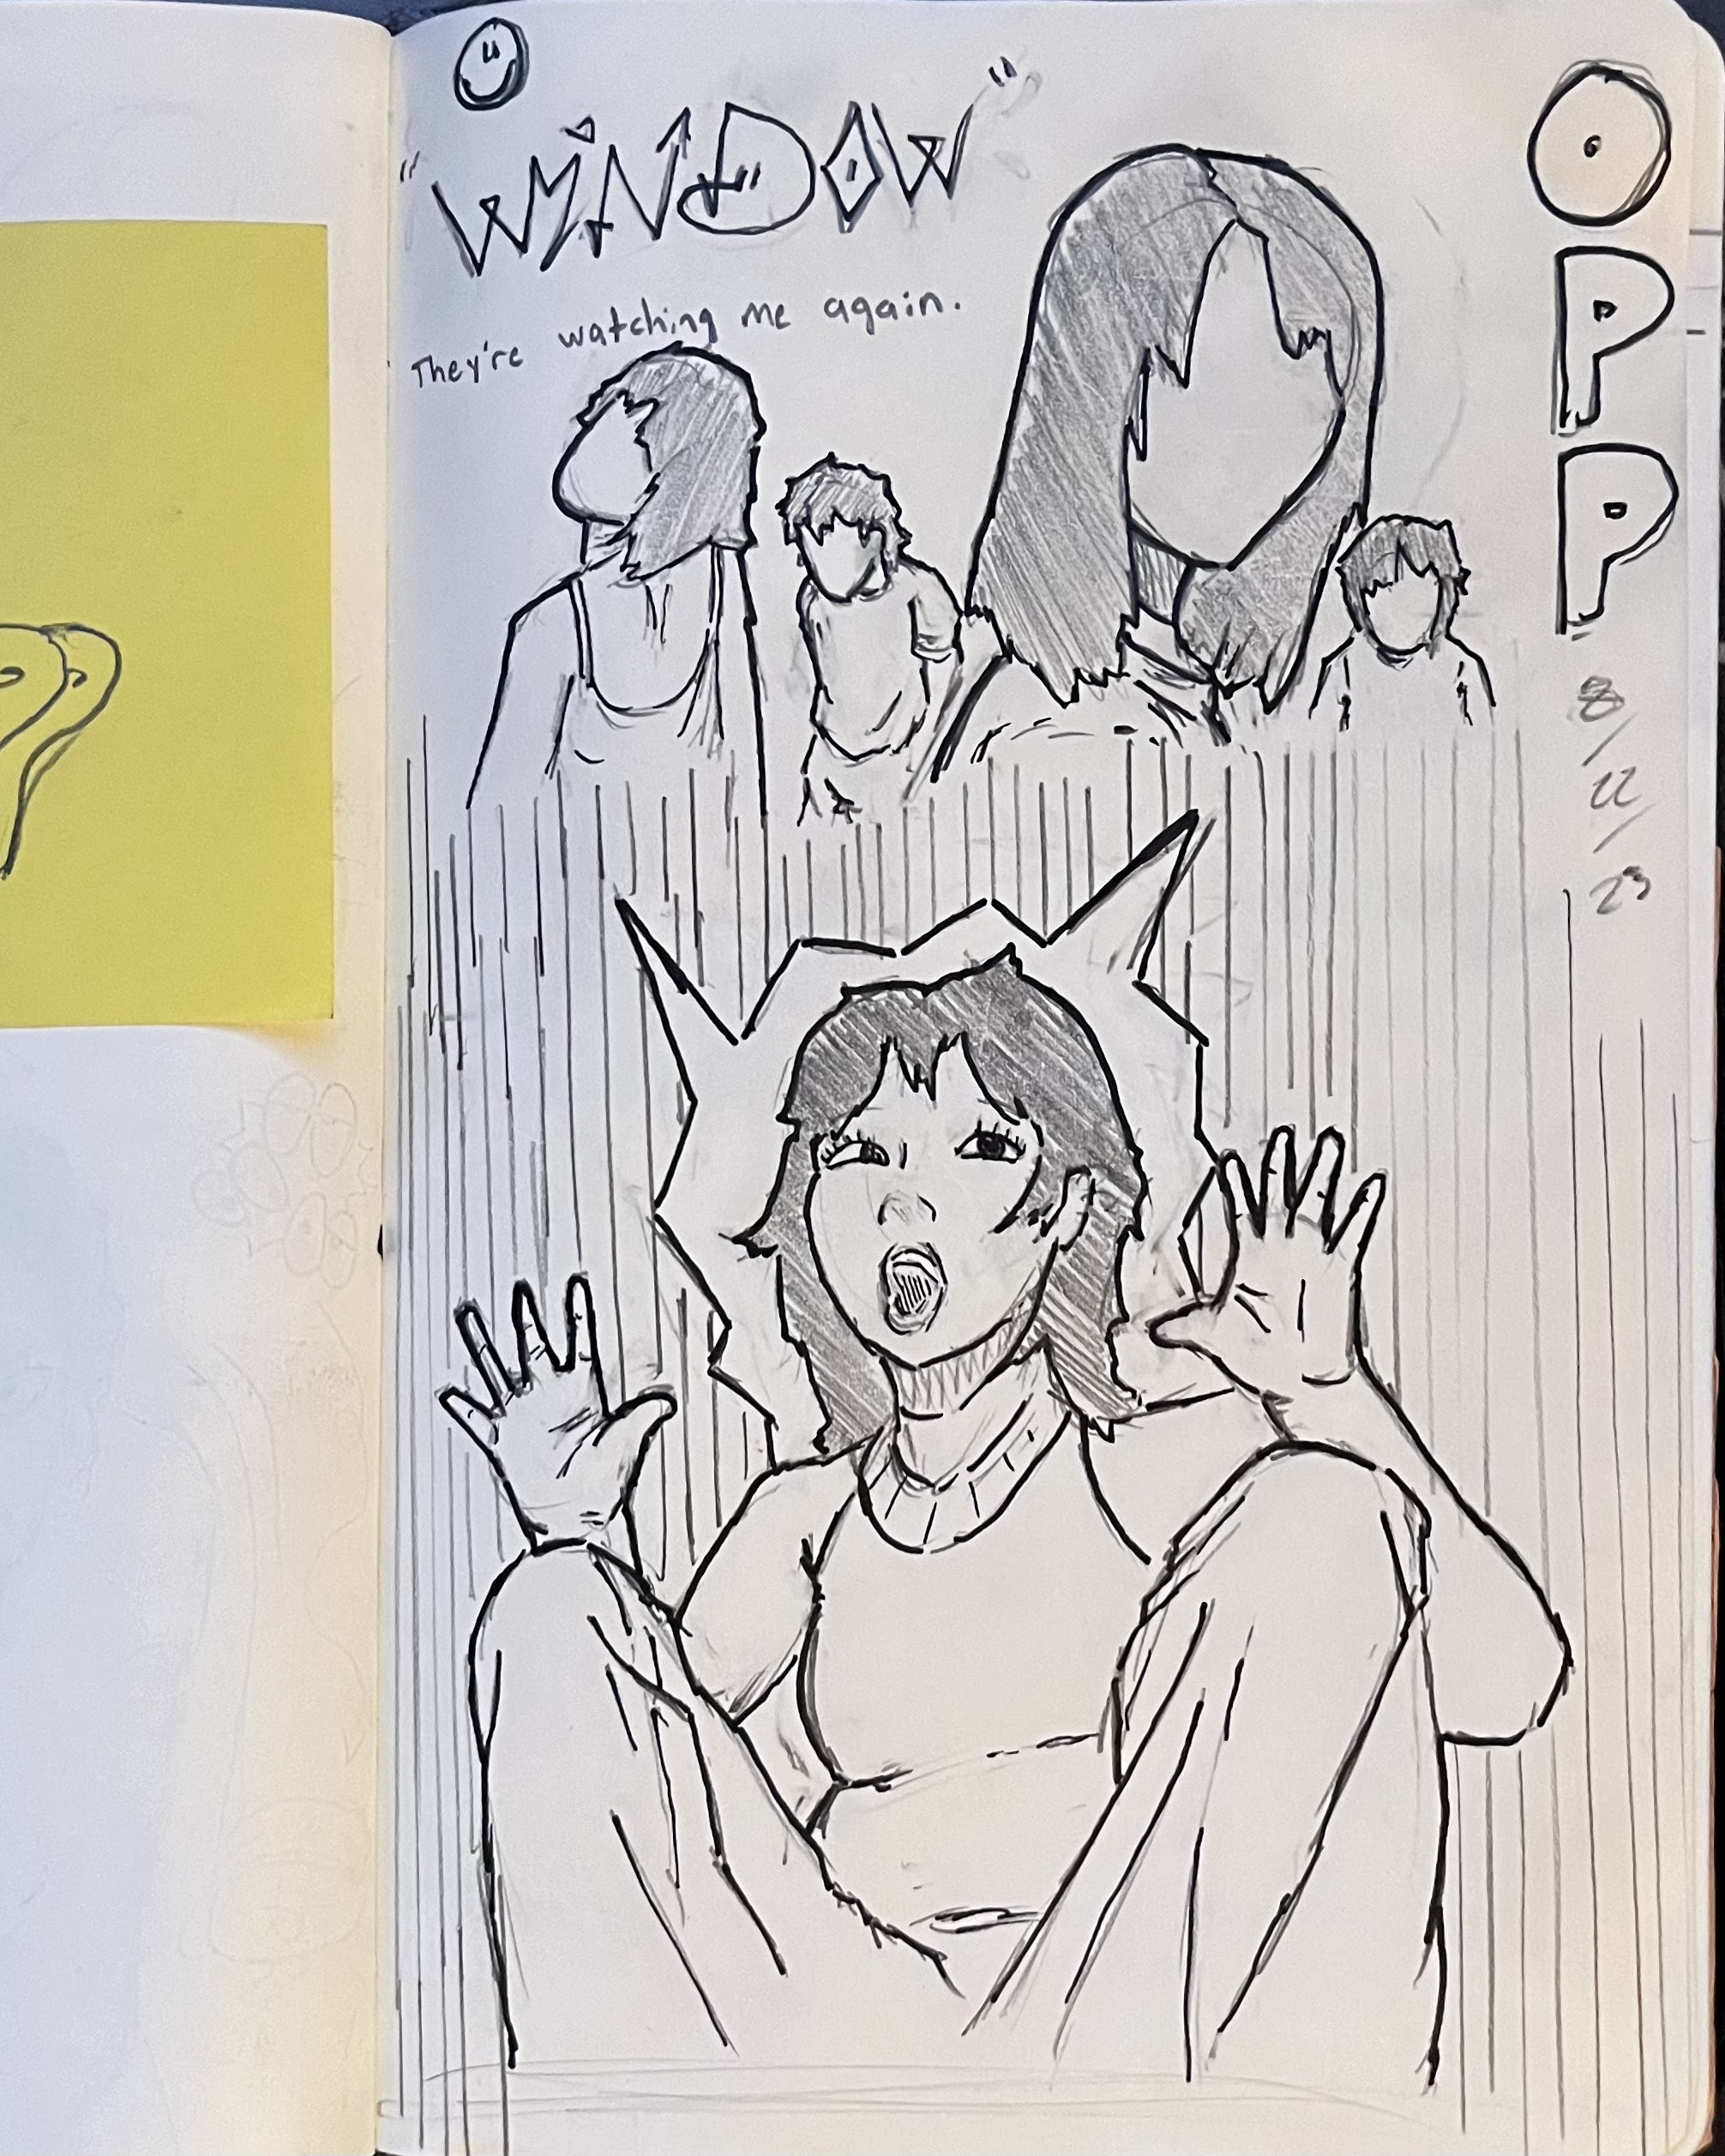 "WiNDOW"
They're watching me again.
O
P
P
8/22/23